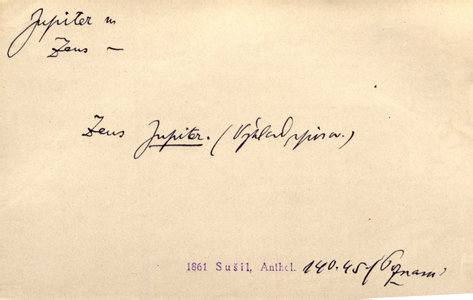 Jupiter m
Zeus –
Zeus Jupiter. (Výklad spisov.)
1861 Sušil, Anthol. 140.45-(Poznam)